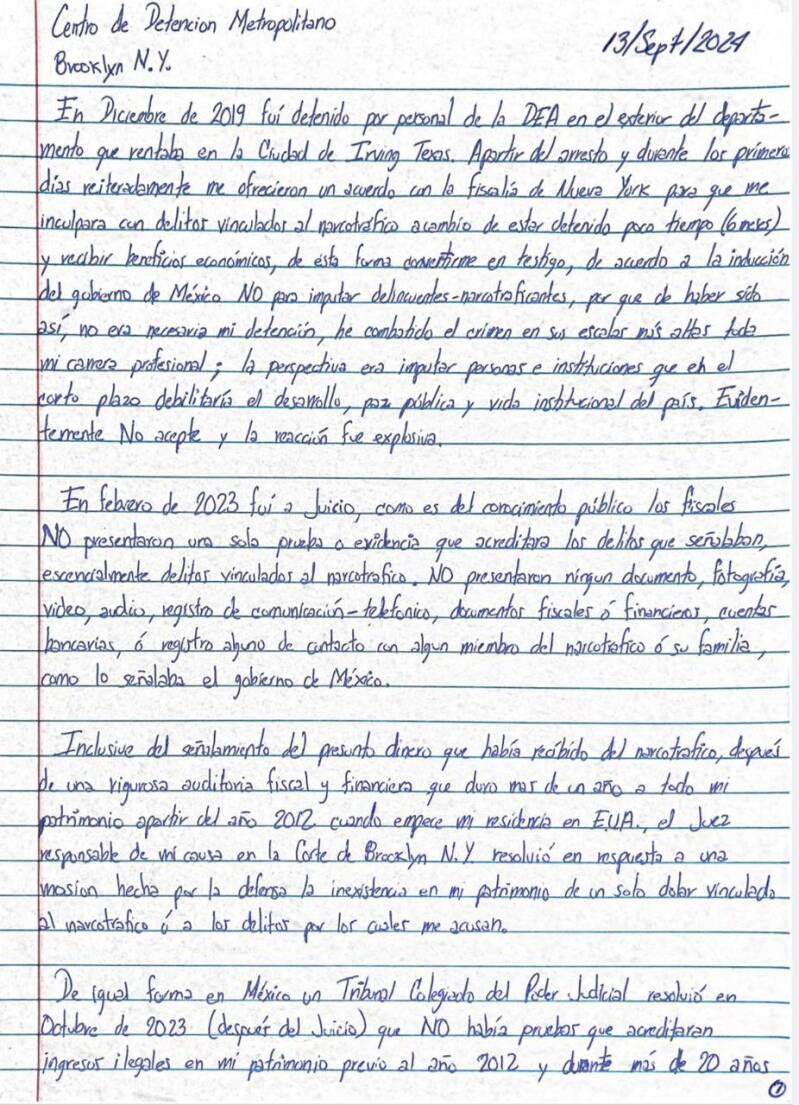 Centro de Detencion Metropolitano
Brooklyn N.Y.
13/Sept/2024
En Diciembre de 2019 fuí detenido por personal de la DEA en el exterior del departa-
mento que rentaba en la Ciudad de Irving Texas. Apartir del arresto y durante los primeros
días reiteradamente me ofrecieron un acuerdo con la fiscalía de Nueva York para que me
inculpara con delitos vinculados al narcotráfico acambio de estar detenido poco tiempo (6 meses)
y recibir beneficios económicos, de ésta forma convertirme en testigo, de acuerdo a la inducción
del gobierno de México NO para imputar delincuentes-narcotraficantes, por que de haber sido
así, no era necesaria mi detención, he combatido el crimen en sus escalas más altas toda
mi carrera profesional; la perspectiva era imputar personas e instituciones que en el
corto plazo debilitaría el desarrollo, paz pública y vida institucional del país. Eviden-
temente No acepte y la reacción fue explosiva.
En febrero de 2023 fuí a Juicio, como es del conocimiento público los fiscales
NO presentaron una sola prueba o evidencia que acreditara los delitos que señalaban,
escencialmente delitos vinculados al narcotrafico. NO presentaron ningun documento, fotografía,
video, audio, registro de comunicación-telefonico, documentos fiscales ó financieros, cuentas
bancarias, ó registro alguno de contacto con algun miembro del narcotrafico ó su familia,
como lo señalaba el gobierno de México.
Inclusive del señalamiento del presunto dinero que había recibido del narcotrafico, después
de una rigurosa auditoria fiscal y financiera que duro mas de un año a todo mi
patrimonio apartir del año 2012 cuando empece mi residencia en EUA., el Juez
responsable de mi causa en la Corte de Brooklyn N.Y. resolvió en respuesta a una
mosion hecha por la defensa la inexistencia en mi patrimonio de un solo dolar vinculado
al narcotrafico ó a los delitos por los cuales me acusan.
De igual forma en México un Tribunal Colegiado del Poder Judicial resolvió en
Octubre de 2023 (después del Juicio) que NO había pruebas que acreditaran
ingresos ilegales en mi patrimonio previo al año 2012 y durante más de 20 años
1